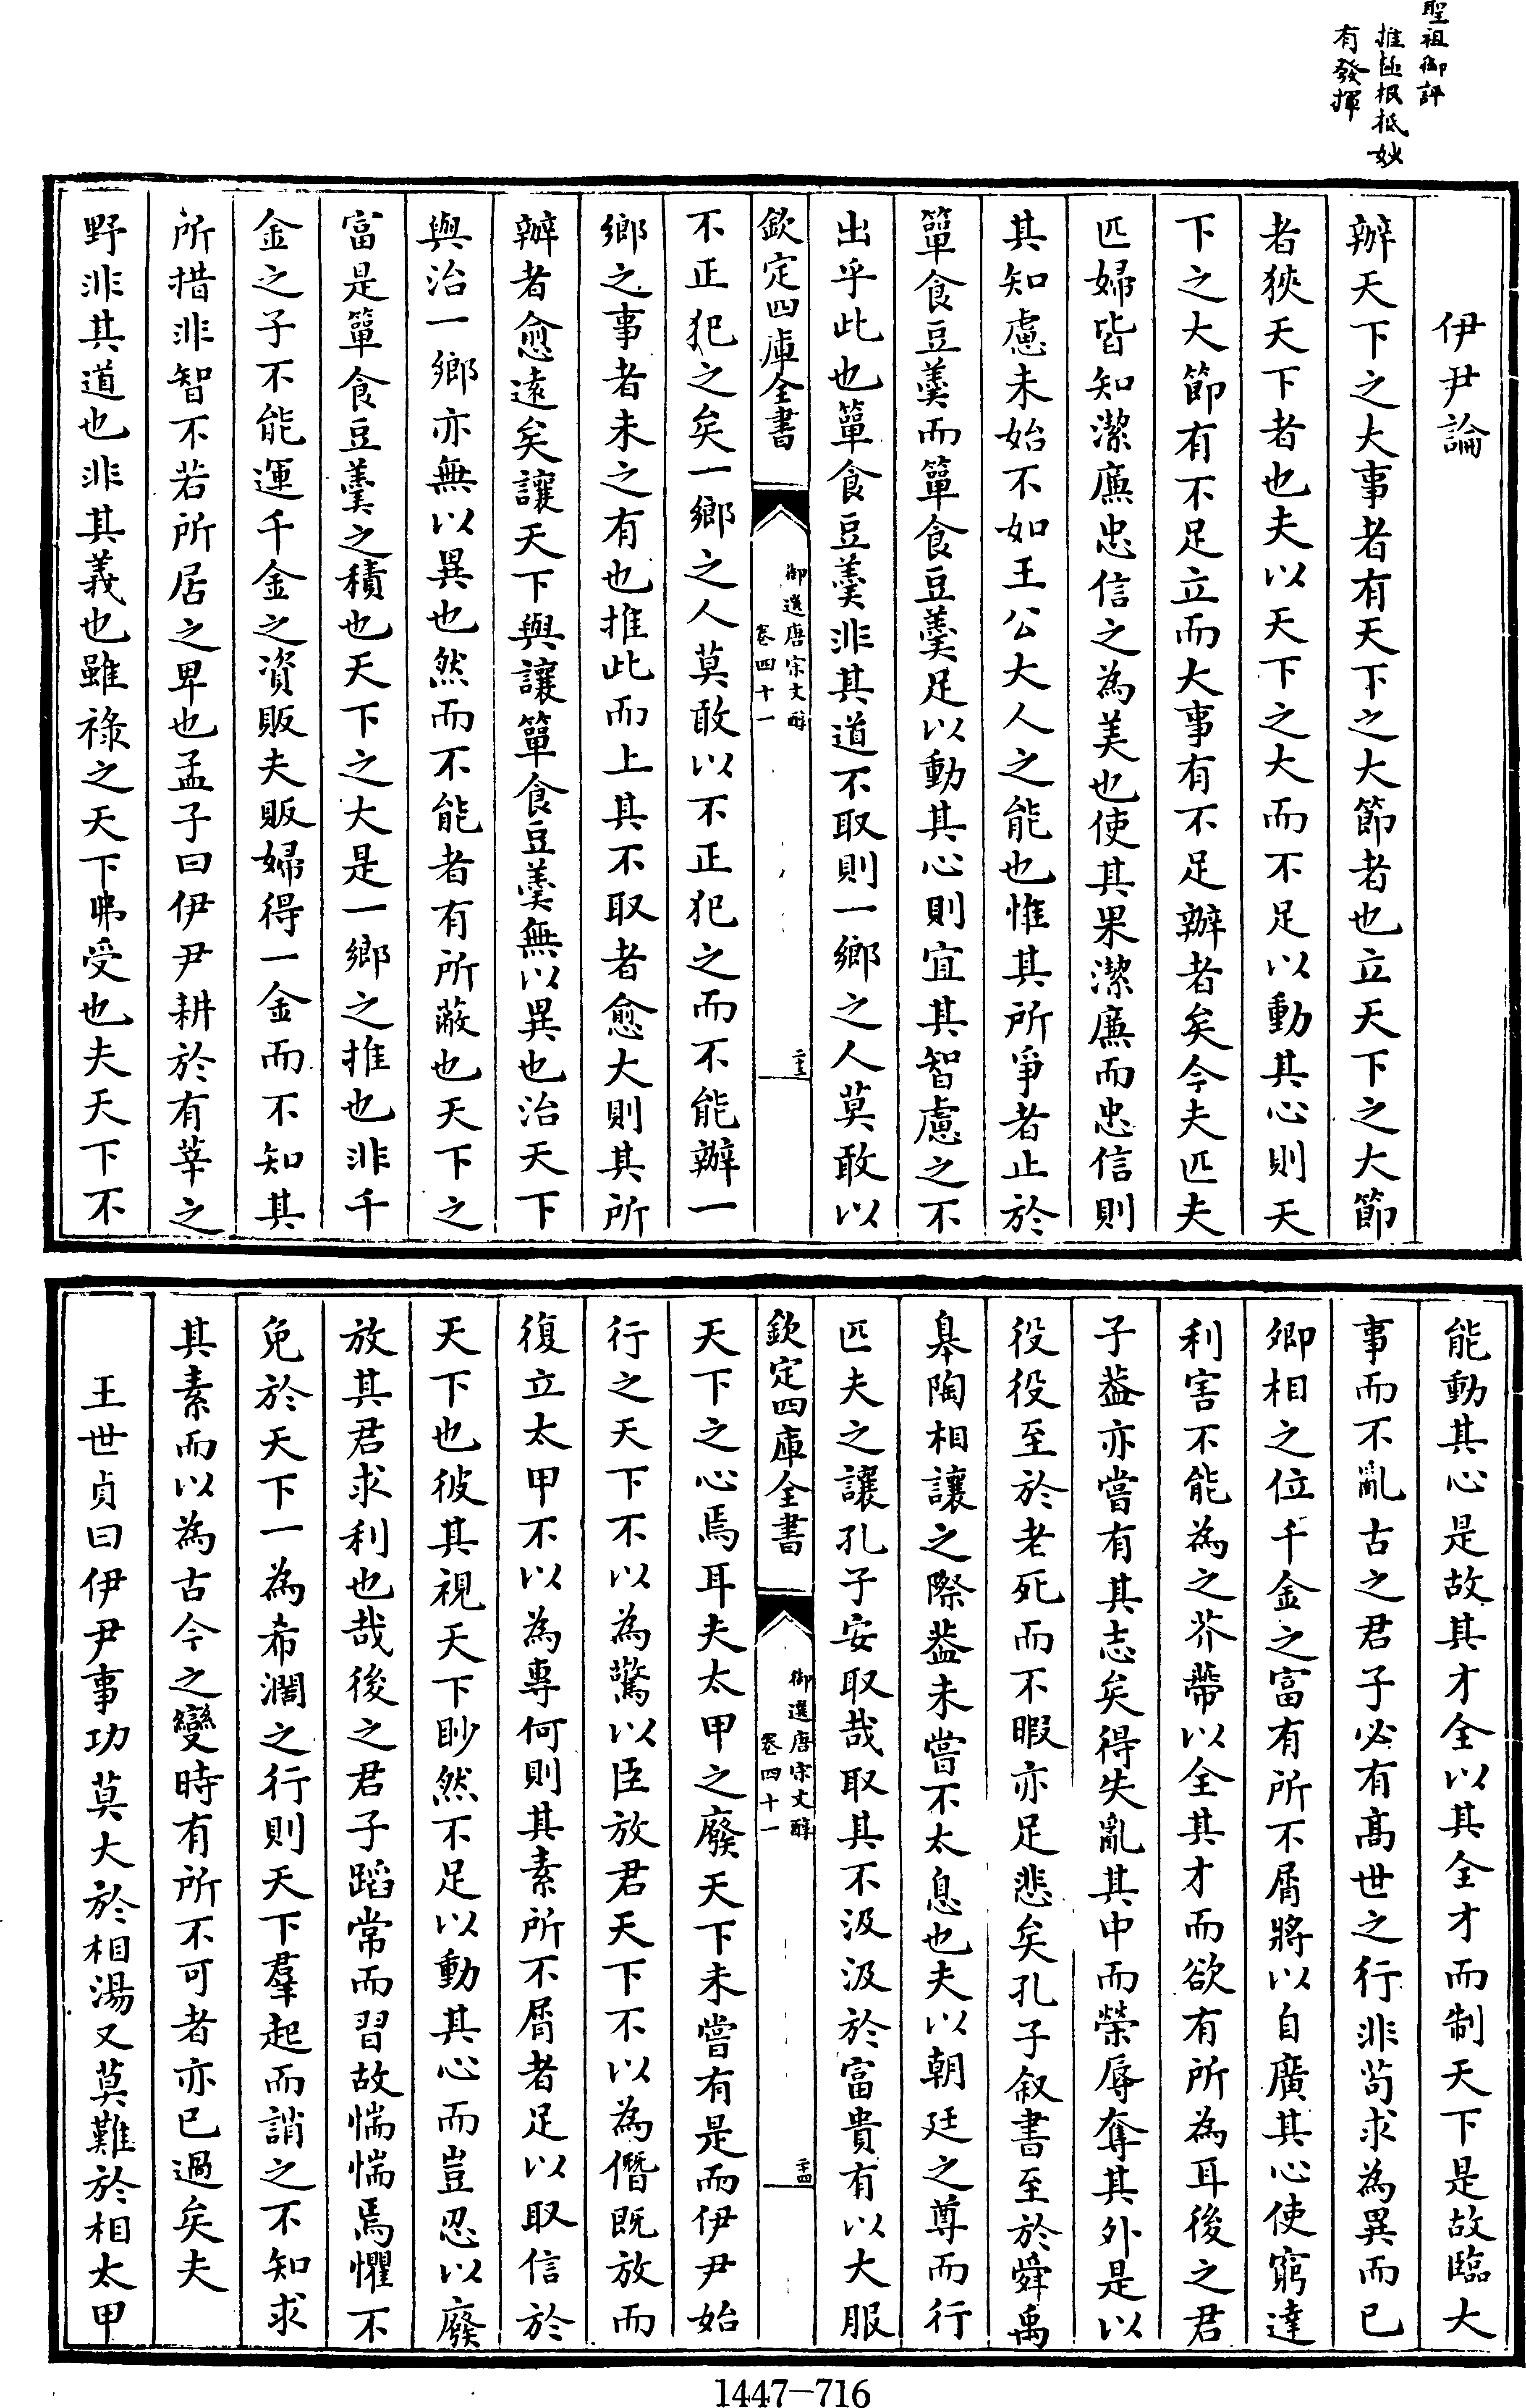 聖祖御評
推極根柢妙
有發揮
伊尹論
辦天下之大事者有天下之大節者也立天下之大節
者狹天下者也夫以天下之大而不足以動其心則天
下之大節有不足立而大事有不足辦者矣今夫匹夫
匹婦皆知潔廉忠信之為美也使其果潔廉而忠信則
其知慮未始不如王公大人之能也惟其所爭者止於
簞食豆羹而簞食豆羹足以動其心則宜其智慮之不
出乎此也簞食豆羹非其道不取則一鄉之人莫敢以
欽定四庫全書
御選唐宋文醇
卷四十一
二十三
不正犯之矣一鄉之人莫敢以不正犯之而不能辦一
鄉之事者未之有也推此而上其不取者愈大則其所
辦者愈遠矣讓天下與讓簞食豆羹無以異也治天下
與治一鄉亦無以異也然而不能者有所蔽也天下之
富是簞食豆羹之積也天下之大是一鄉之推也非千
金之子不能運千金之資販夫販婦得一金而不知其
所措非智不若所居之卑也孟子曰伊尹耕於有莘之
野非其道也非其義也雖祿之天下弗受也夫天下不
能動其心是故其才全以其全才而制天下是故臨大
事而不亂古之君子必有髙世之行非苟求為異而已
卿相之位千金之富有所不屑將以自廣其心使窮達
利害不能為之芥蔕以全其才而欲有所為耳後之君
子葢亦嘗有其志矣得失亂其中而榮辱奪其外是以
役役至於老死而不暇亦足悲矣孔子叙書至於舜禹
皋陶相讓之際葢未嘗不太息也夫以朝廷之尊而行
匹夫之讓孔子安取哉取其不汲汲於富貴有以大服
欽定四庫全書
御選唐宋文醇
卷四十一
二十四
天下之心焉耳夫太甲之廢天下未嘗有是而伊尹始
行之天下不以為驚以臣放君天下不以為僭既放而
復立太甲不以為專何則其素所不屑者足以取信於
天下也彼其視天下眇然不足以動其心而豈忍以廢
放其君求利也哉後之君子蹈常而習故惴惴焉懼不
免於天下一為希濶之行則天下羣起而誚之不知求
其素而以為古今之變時有所不可者亦已過矣夫
王世貞曰伊尹事功莫大於相湯又莫難於相太甲
1447—716